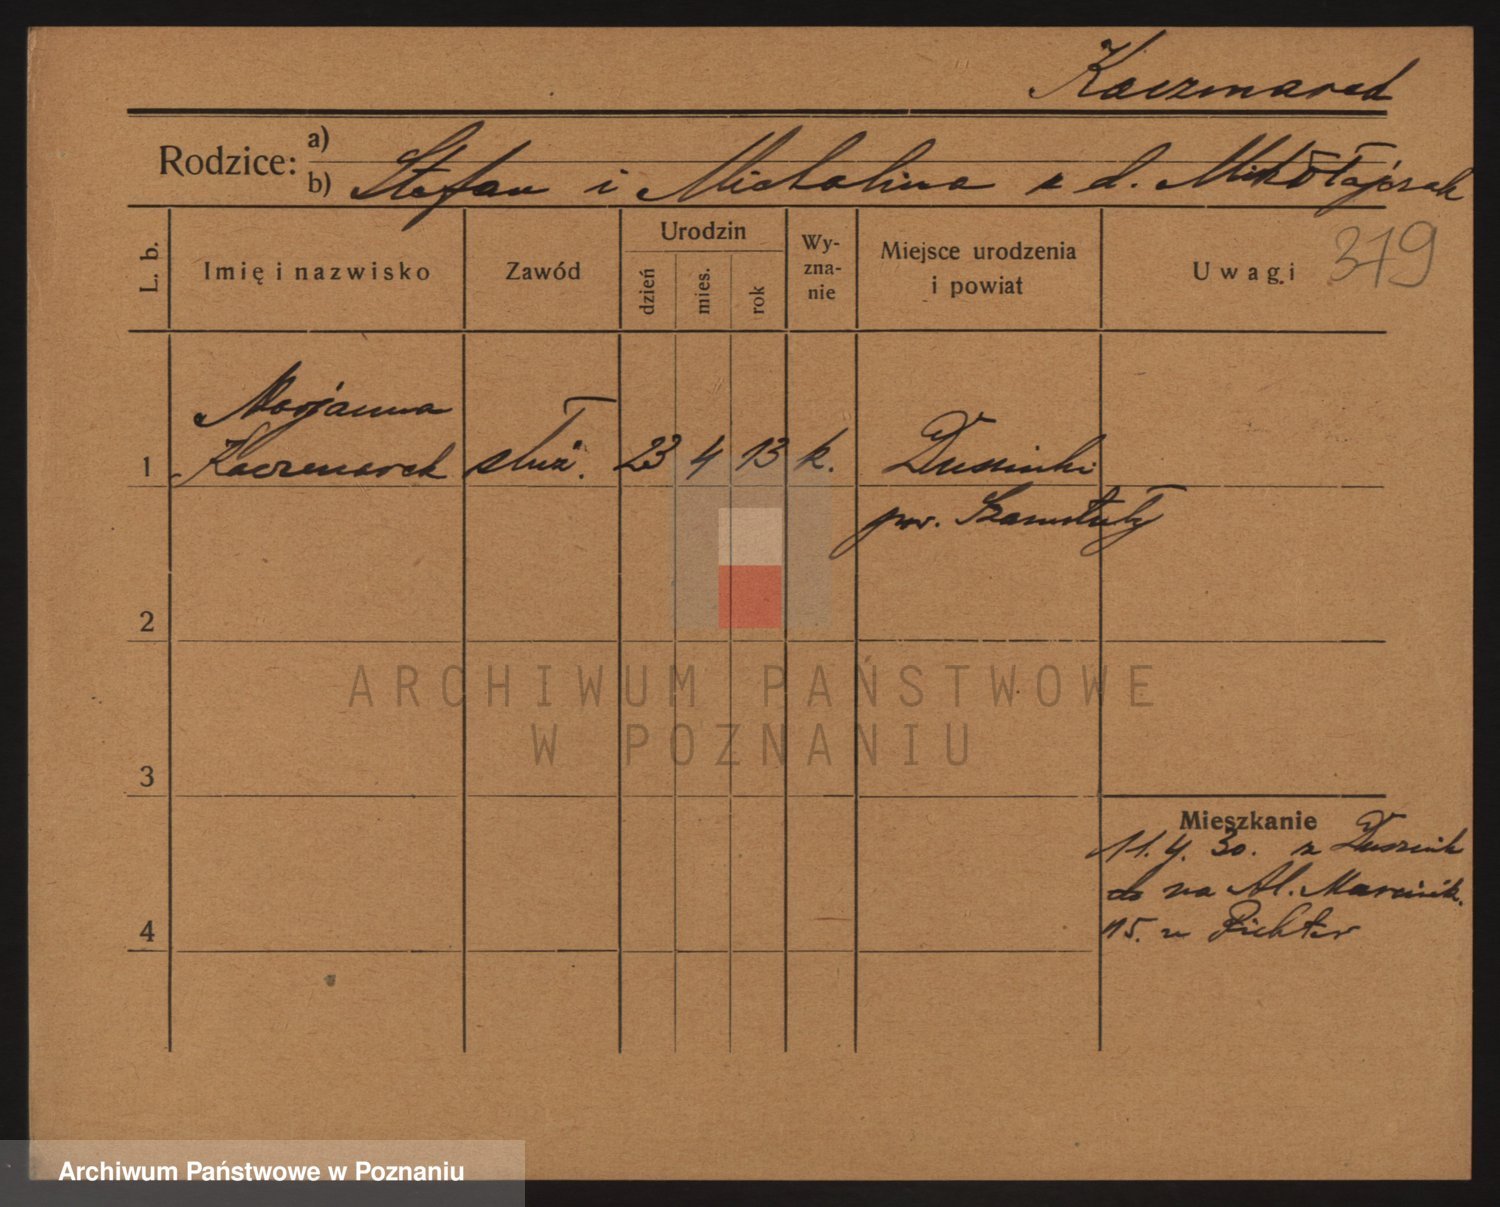 Kaczmarek
Rodzice:
a)
b) Stefan i Michalina z d. Mikołajczak
L. b.
Imię i nazwisko
Zawód
Urodzin
dzień
mies.
rok
Wy-
zna-
nie
Miejsce urodzenia
i powiat
Uwagi
379
Marjanna
1 Kaczmarek służ. 23 4 13 k. Duszniki
pow. Szamotuły
2
3
4
Mieszkanie
11.4.30. z Dusznik
do na Al. Marcink.
15. u Richter
ARCHIWUM PAŃSTWOWE
W POZNANIU
Archiwum Państwowe w Poznaniu